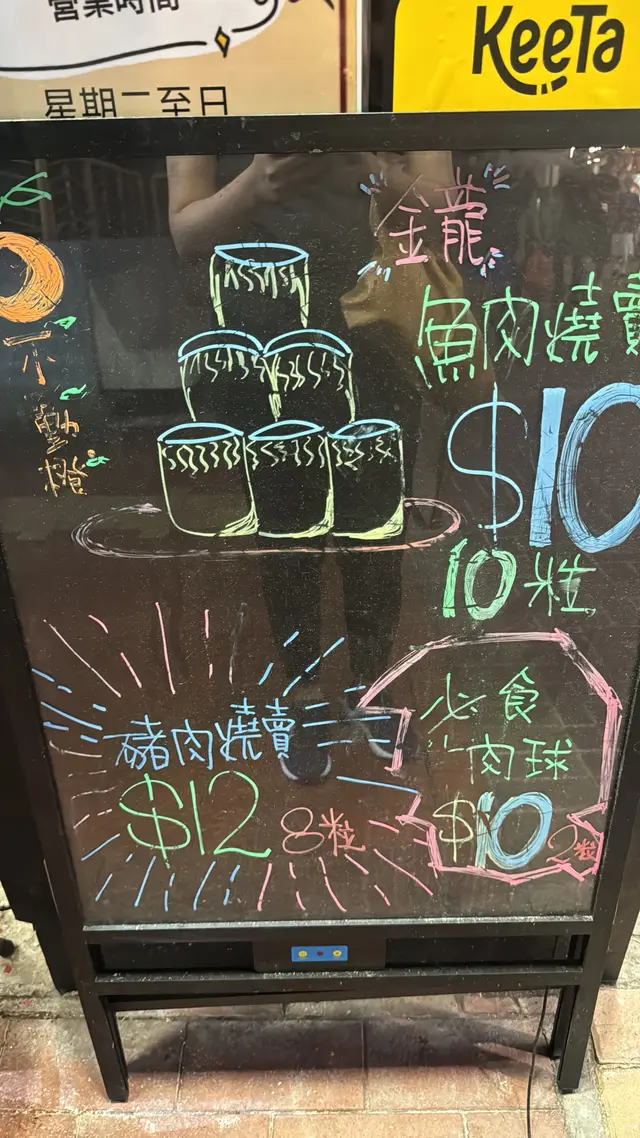 營業時間
星期二至日
KeeTa
魚肉燒賣
$10
10粒
不
動
橙
豬肉燒賣
$12 8粒
必食
牛肉球
$10 2粒